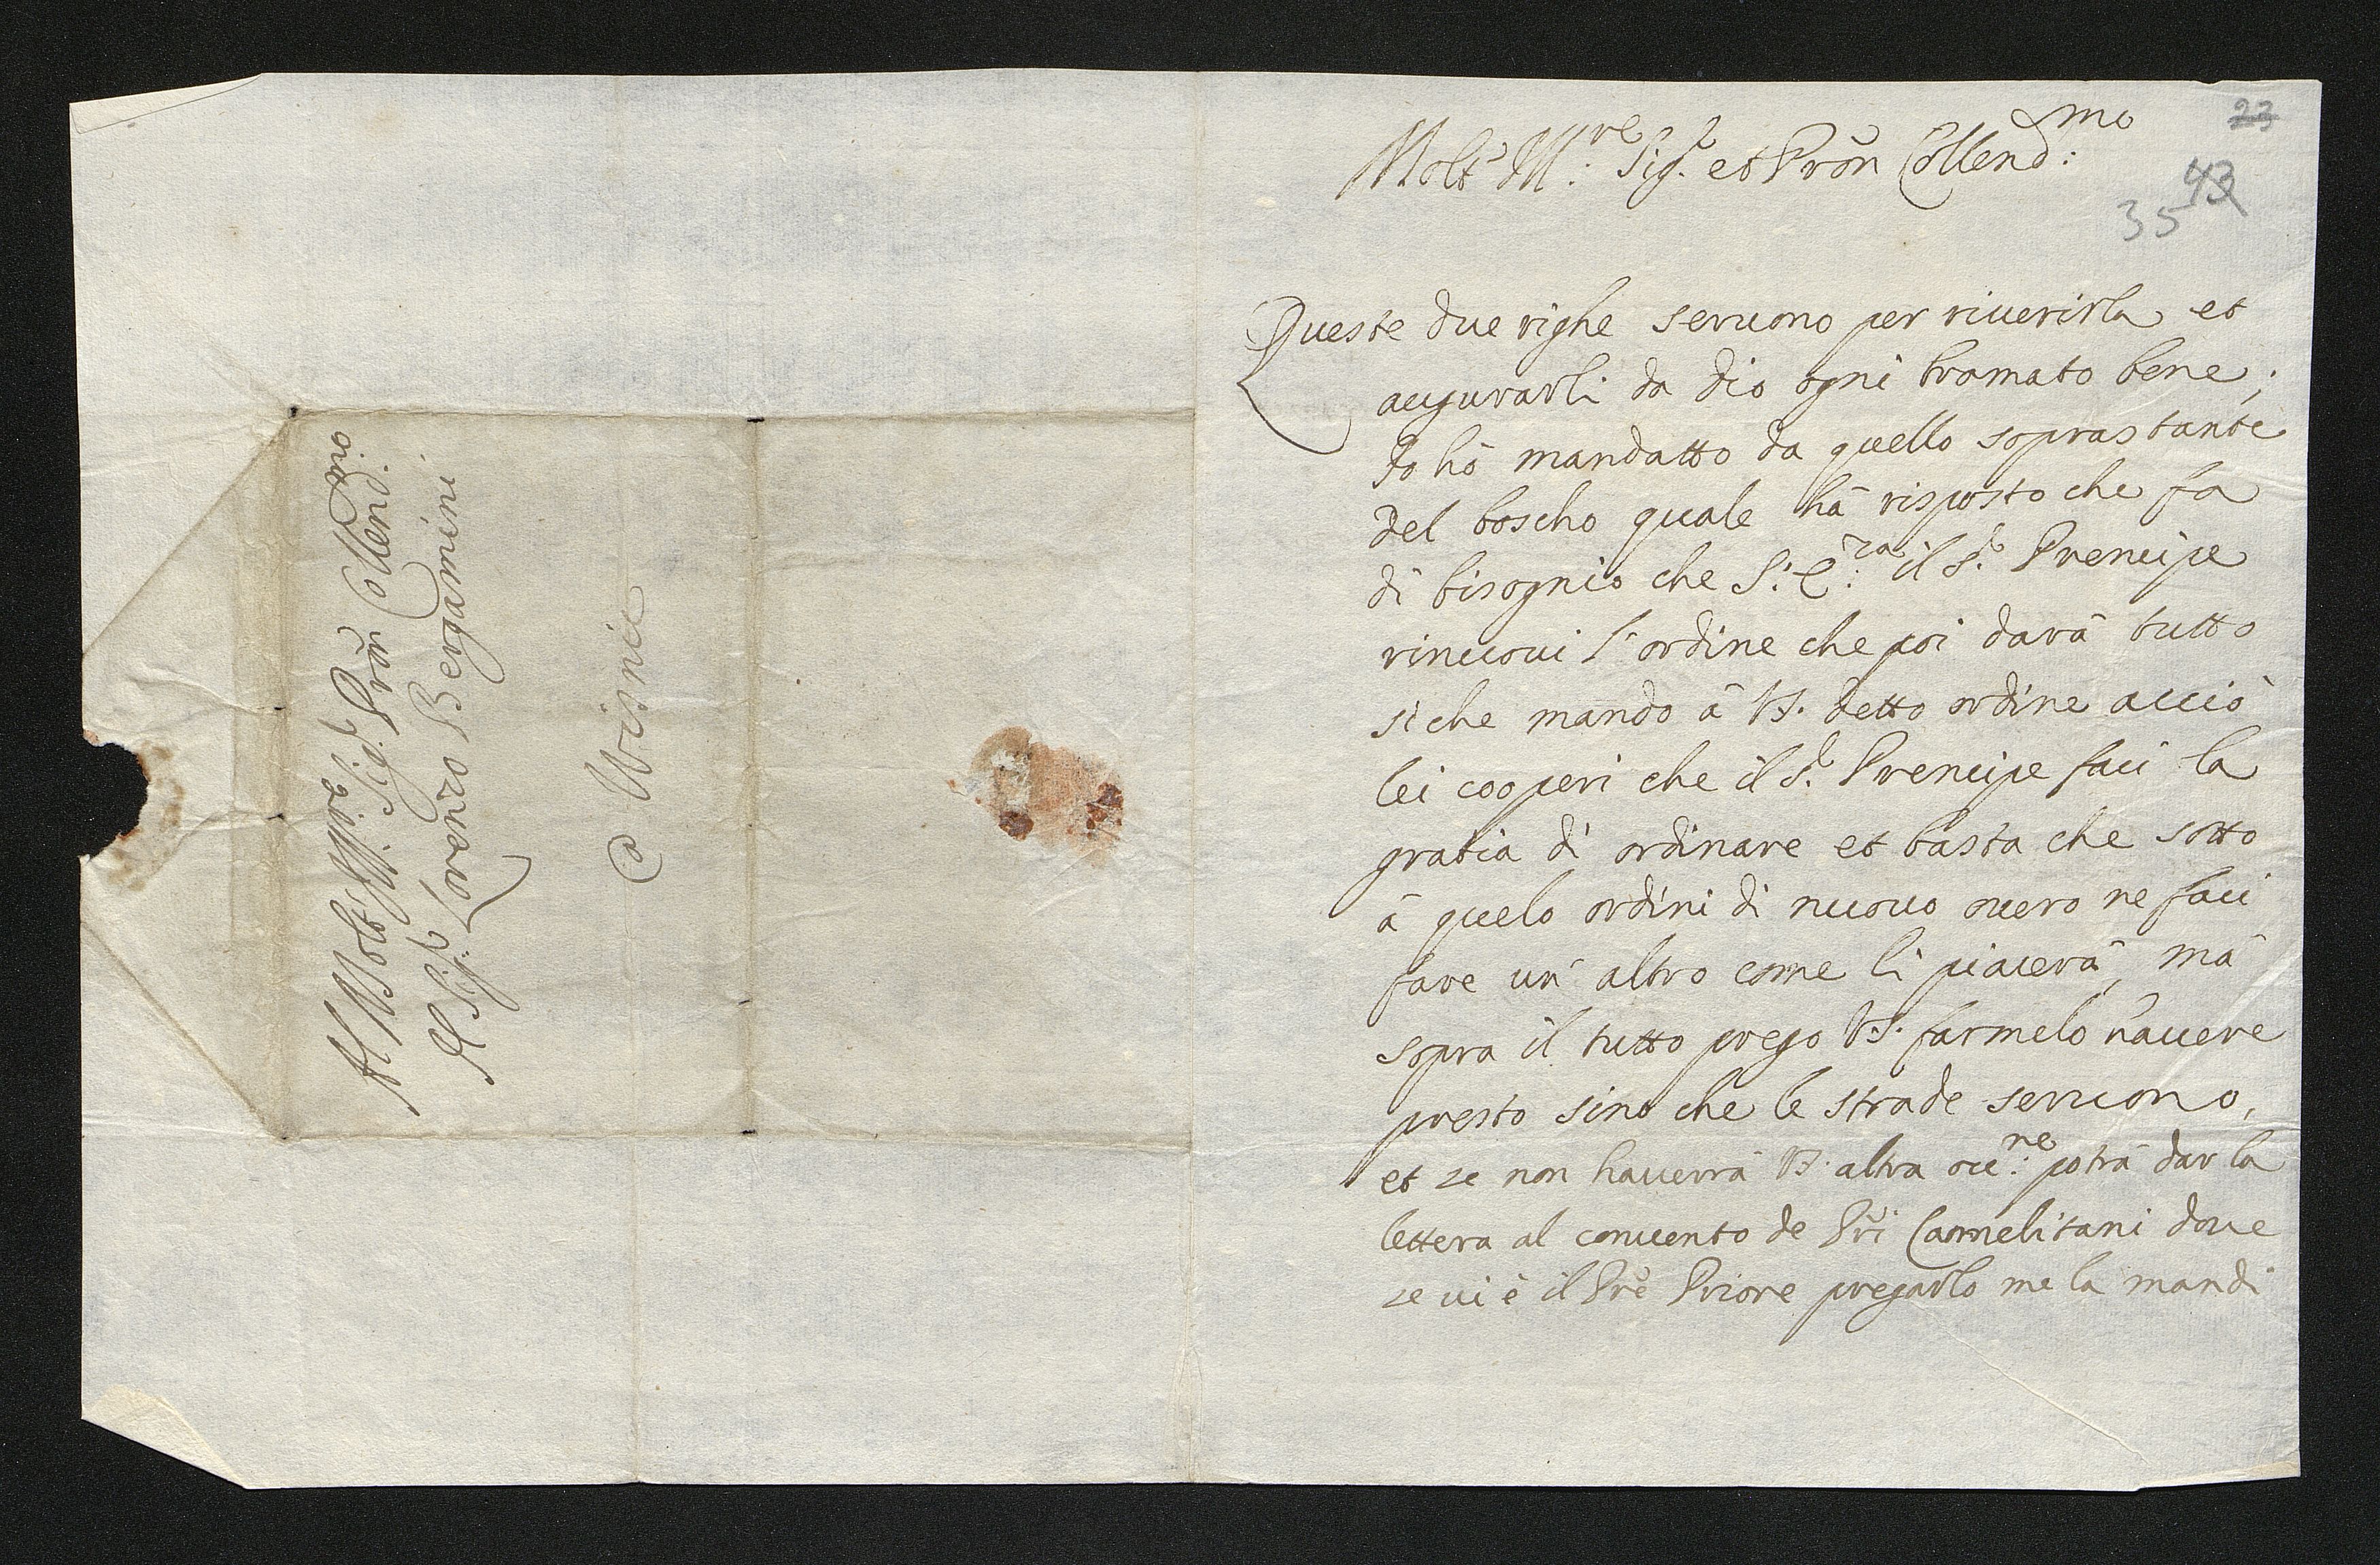 Al Molt' Ill.re Sig.r Prōn Collend.mo
Al Sig.r Lorenzo Bergamini
a Wisnic
23
43
35
Molt' Ill.re Sig.r et Prōn Collend.mo
Queste due righe seruono per riuerirla et
augurarli da dio ogni bramato bene;
Io hò mandatto da quello soprastante
del boscho quale hà risposto che fa
di bisognio che S. E.za il S.r Prencipe
rinuoui l'ordine che poi darà tutto
si che mando à VS. detto ordine acciò
lei cooperi che il S.r Prencipe faci la
gratia di ordinare et basta che sotto
à quelo ordini di nuouo ouero ne faci
fare un' altro come li piacerà, mà
sopra il tutto prego VS. farmelo hauere
presto sino che le strade seruono,
et se non hauerrà VS. altra occ.ne potrà dar la
lettera al conuento de Pri Carmelitani doue
se ui è il Pre Priore pregarlo me la mandi